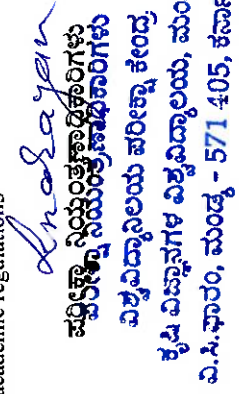 academic regulations
ಪರೀಕ್ಷಾ ನಿಯಂತ್ರಣಾಧಿಕಾರಿಗಳು
ಪರೀಕ್ಷಾ ನಿಯಂತ್ರಣಾಧಿಕಾರಿಗಳು
ವಿಶ್ವವಿದ್ಯಾನಿಲಯ ಪರೀಕ್ಷಾ ಕೇಂದ್ರ
ಕೃಷಿ ವಿಜ್ಞಾನಗಳ ವಿಶ್ವವಿದ್ಯಾಲಯ, ಮಂ
ವಿ.ಸಿ.ಫಾರಂ, ಮಂಡ್ಯ - 571 405, ಕರ್ನಾ